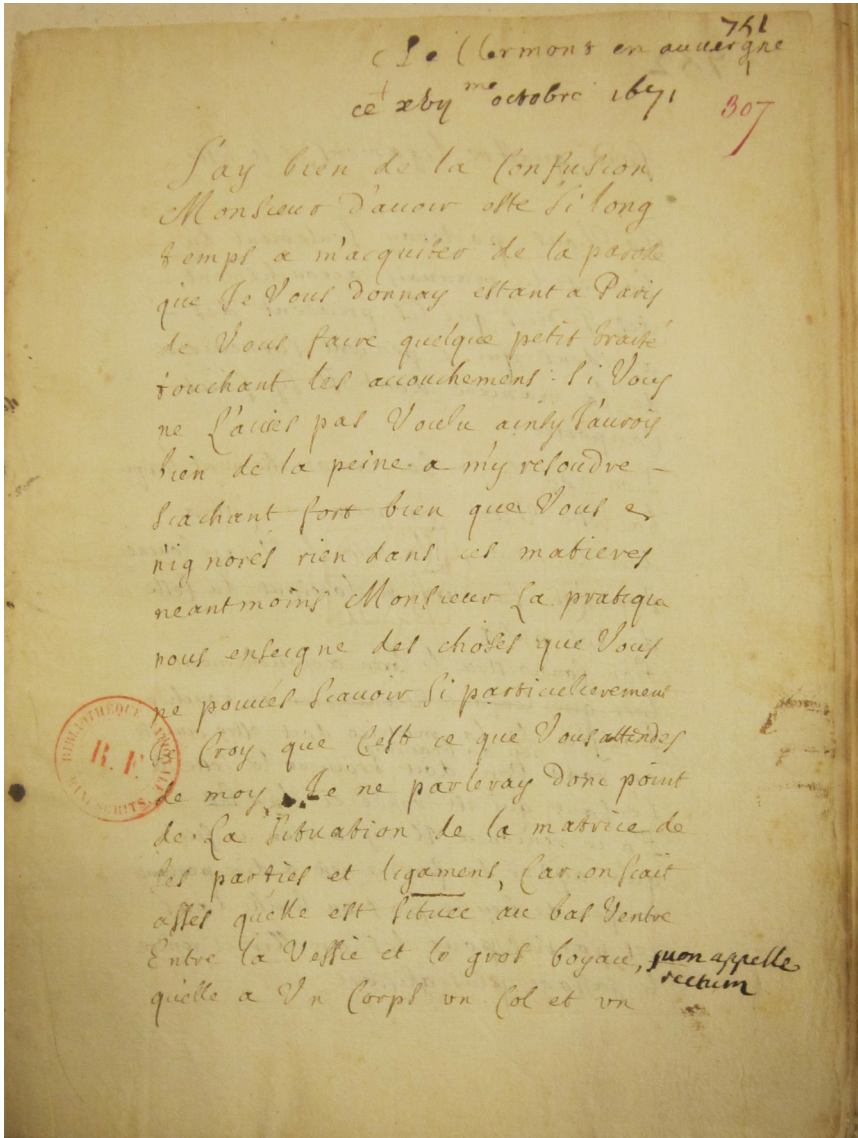 751
De Clermont en auvergne
ce xvij me octobre 1671
307
J'ay bien de la Confusion
Monsieur d'auoir esté si long
temps a m'acquiter de la parole
que Je Vous donnay estant a Paris
de Vous faire quelque petit traité
touchant les accouchemens. Si Vous
ne L'auiés pas Voulu ainsy J'aurois
bien de la peine a m'y resoudre
scachant fort bien que Vous
n'ignorés rien dans ces matieres
neantmoins Monsieur La pratique
nous enseigne des choses que Vous
ne pouués scauoir si particulierement
Je Croy que C'est ce que Vous attendes
de moy, Je ne parleray Donc point
de La situation de la matrice de
ses parties et ligamens, Car on scait
assés qu'elle est située au bas Ventre
Entre la Vessie et le gros boyau, quon appelle
rectum
qu'elle a Vn Corps vn Col et vn
BIBLIOTHEQUE NATIONALE
R.F.
MANUSCRITS